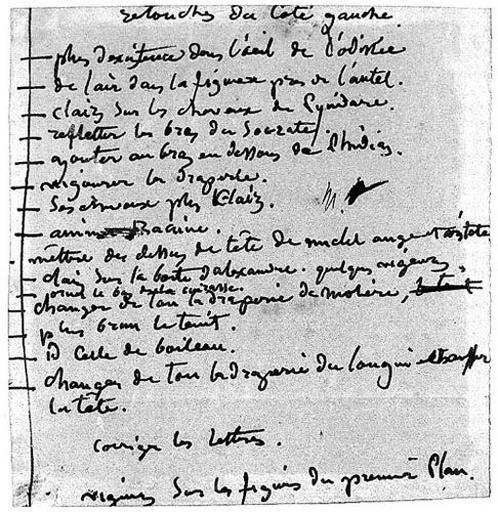 retouches du coté gauche.
plus d'existence dans l'œil de l'odissée
de l'air dans la figure près de l'autel.
clairs sur les chevaux de Pindare.
refletter les bras du Socrate.
ajouter au bras en dessous de Phidias.
vigourer la draperie.
Ses cheveux plus Clairs.
animer Racine.
mettre des dessus de tête de michel ange et aristote
clair sur la botte d'alexandre. quelques vigeurs
sur la cuirasse.
changer de ton la draperie de molière,
plus brun le teint.
iD Celle de boileau.
changer de ton la draperie du longin
la tête.
corriger les lettres.
vigeurs Sur les figures du premier Plan.